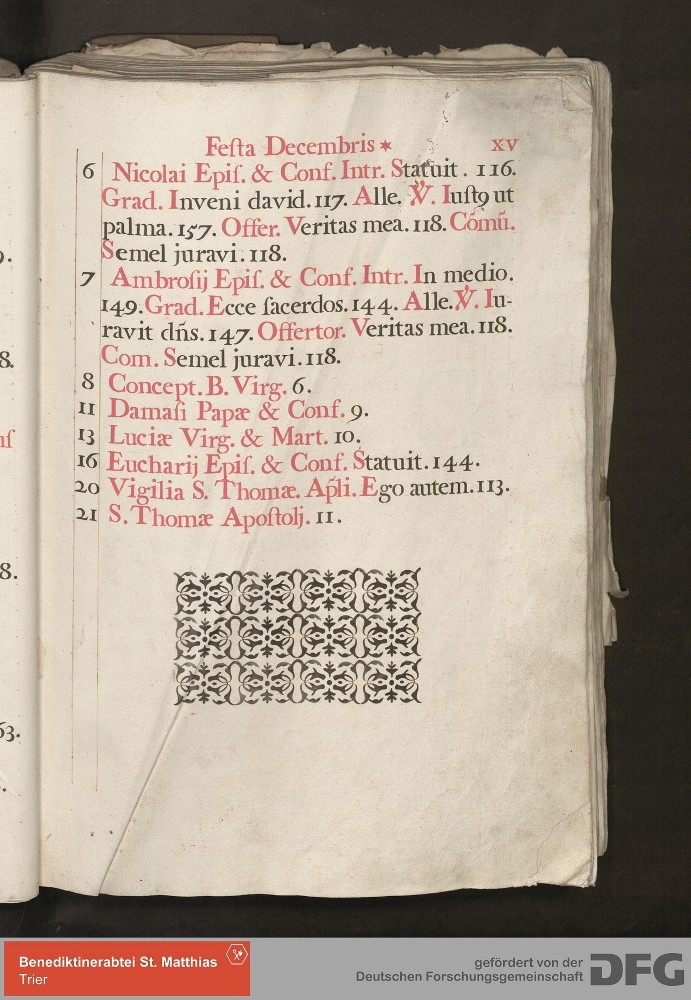 Feſta Decembris * XV
6 Nicolai Epiſ. & Conf. Intr. Statuit. 116.
Grad. Inveni david. 117. Alle. ℣. Iuſtꝰ ut
palma. 157. Offer. Veritas mea. 118. Cōmū.
Semel juravi. 118.
7 Ambroſij Epiſ. & Conf. Intr. In medio.
149. Grad. Ecce ſacerdos. 144. Alle. ℣. Iu-
ravit dñs. 147. Offertor. Veritas mea. 118.
Com. Semel juravi. 118.
8 Concept. B. Virg. 6.
11 Damaſi Papæ & Conf. 9.
13 Luciæ Virg. & Mart. 10.
16 Eucharij Epiſ. & Conf. Statuit. 144.
20 Vigilia S. Thomæ. Ap̃li. Ego autem. 113.
21 S. Thomæ Apoſtolj. 11.
8.
iſ
8.
63.
Benediktinerabtei St. Matthias
Trier
gefördert von der
Deutschen Forschungsgemeinschaft
DFG